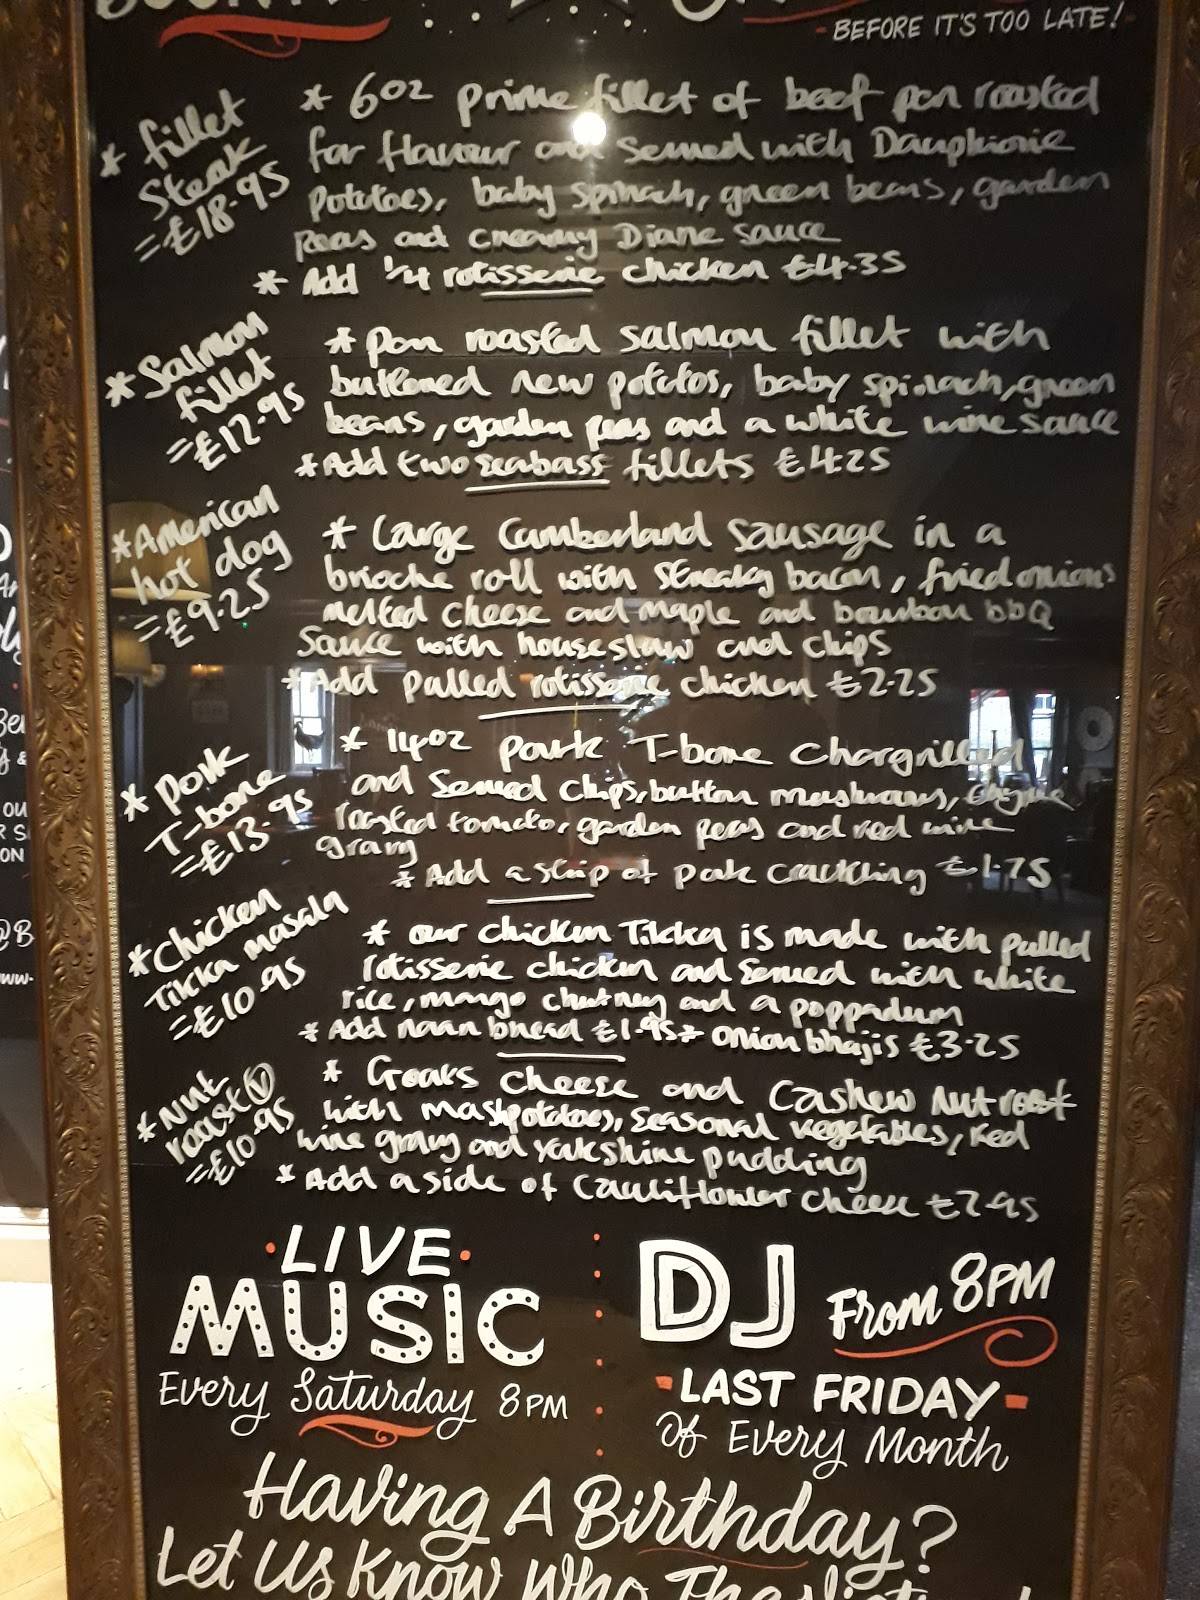 BEFORE IT'S TOO LATE!
* fillet
Steak
= £18.95
* 6oz prime fillet of beef pan roasted
for flavour and served with Dauphionie
Potatoes, baby spinach, green beans, garden
peas and creamy Diane sauce
* Add 1/4 rotisserie chicken £4.35
* Salmon
fillet
= £12.95
* Pan roasted salmon fillet with
buttered new potatos, baby spinach, green
beans, garden peas and a white wine sauce
* Add two seabass fillets £4.25
* American
hot dog
= £9.25
* Large Cumberland Sausage in a
brioche roll with streaky bacon, fried onions
melted cheese and maple and bourbon bbQ
Sauce with house slaw and chips
* Add pulled rotisserie chicken £2.25
* Pork
T-bone
= £13.95
* 14oz Pork T-bone Chargrilled
and Served chips, button mushrooms, thyme
roasted tomato, garden peas and red wine
gravy
* Add a strip of pork crackling £1.75
* Chicken
Tikka masala
= £10.95
* our chicken Tikka is made with pulled
rotisserie chicken and served with white
rice, mango chutney and a poppadum
* Add naan bread £1.95 * onion bhajis £3.25
* Nut
roast V
= £10.95
* Goats cheese and Cashew Nut roast
with mashpotatoes, seasonal vegetables, red
wine gravy and yorkshire pudding
* Add a side of cauliflower cheese £2.95
LIVE
MUSIC
Every Saturday 8PM
DJ From 8PM
LAST FRIDAY
Of Every Month
Having A Birthday?
Let Us Know Who The